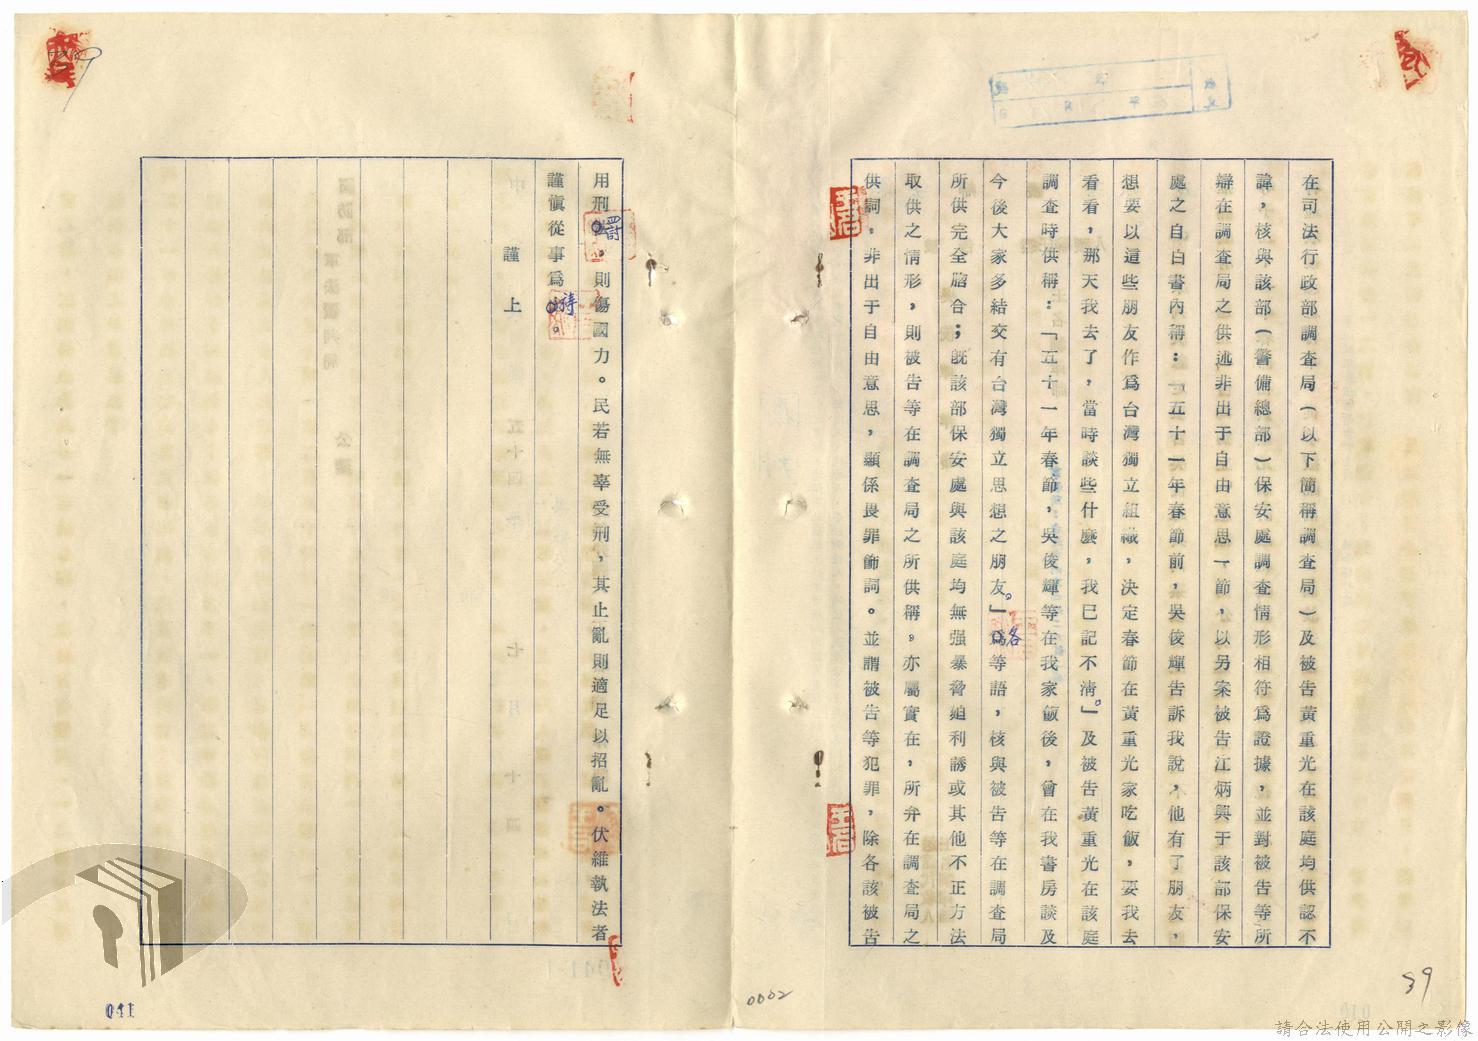 在司法行政部調查局(以下簡稱調查局)及被告黃重光在該庭均供認不
諱,核與該部(警備總部)保安處調查情形相符爲證據,並對被告等所
辯在調查局之供述非出于自由意思一節,以另案被告江炳興于該部保安
處之自白書內稱:「五十一年春節前,吳俊輝告訴我說,他有了朋友,
想要以這些朋友作爲台灣獨立組織,決定春節在黃重光家吃飯,要我去
看看,那天我去了,當時談些什麽,我已記不清。」及被告黃重光在該庭
調查時供稱:「五十一年春節,吳俊輝等在我家飯後,曾在我書房談及
今後大家多結交有台灣獨立思想之朋友。」各等語,核與被告等在調查局
所供完全脗合;旣該部保安處與該庭均無强暴脅廹利誘或其他不正方法
取供之情形,則被告等在調查局之所供稱,亦屬實在,所弁在調查局之
供詞,非出于自由意思,顯係畏罪飾詞。並謂被告等犯罪,除各該被告
用刑罰,則傷國力。民若無辜受刑,其止亂則適足以招亂。伏維執法者
謹愼從事爲禱。
謹 上
五十四 年 七 月 十 四
041
0002
39
請合法使用公開之影像